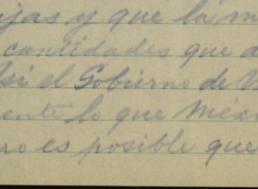 ijas y que la m
cantidades que a
Así el Gobierno de
ente lo que Méxi
no es posible que